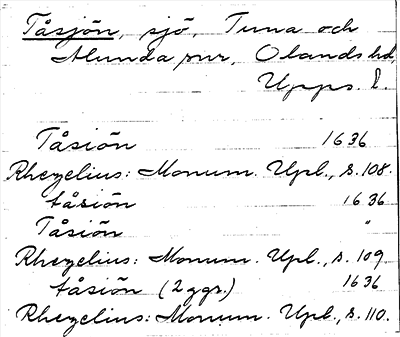 Tåsjön, sjö, Tuna och
Alunda snr, Olands hd,
Upps. l.
Tåsiön 1636
Rhezelius: Monum. Upl., s. 108.
tåsiön 1636
Tåsiön "
Rhezelius: Monum. Upl., s. 109
tåsiön (2 ggr.) 1636
Rhezelius: Monum. Upl., s. 110.